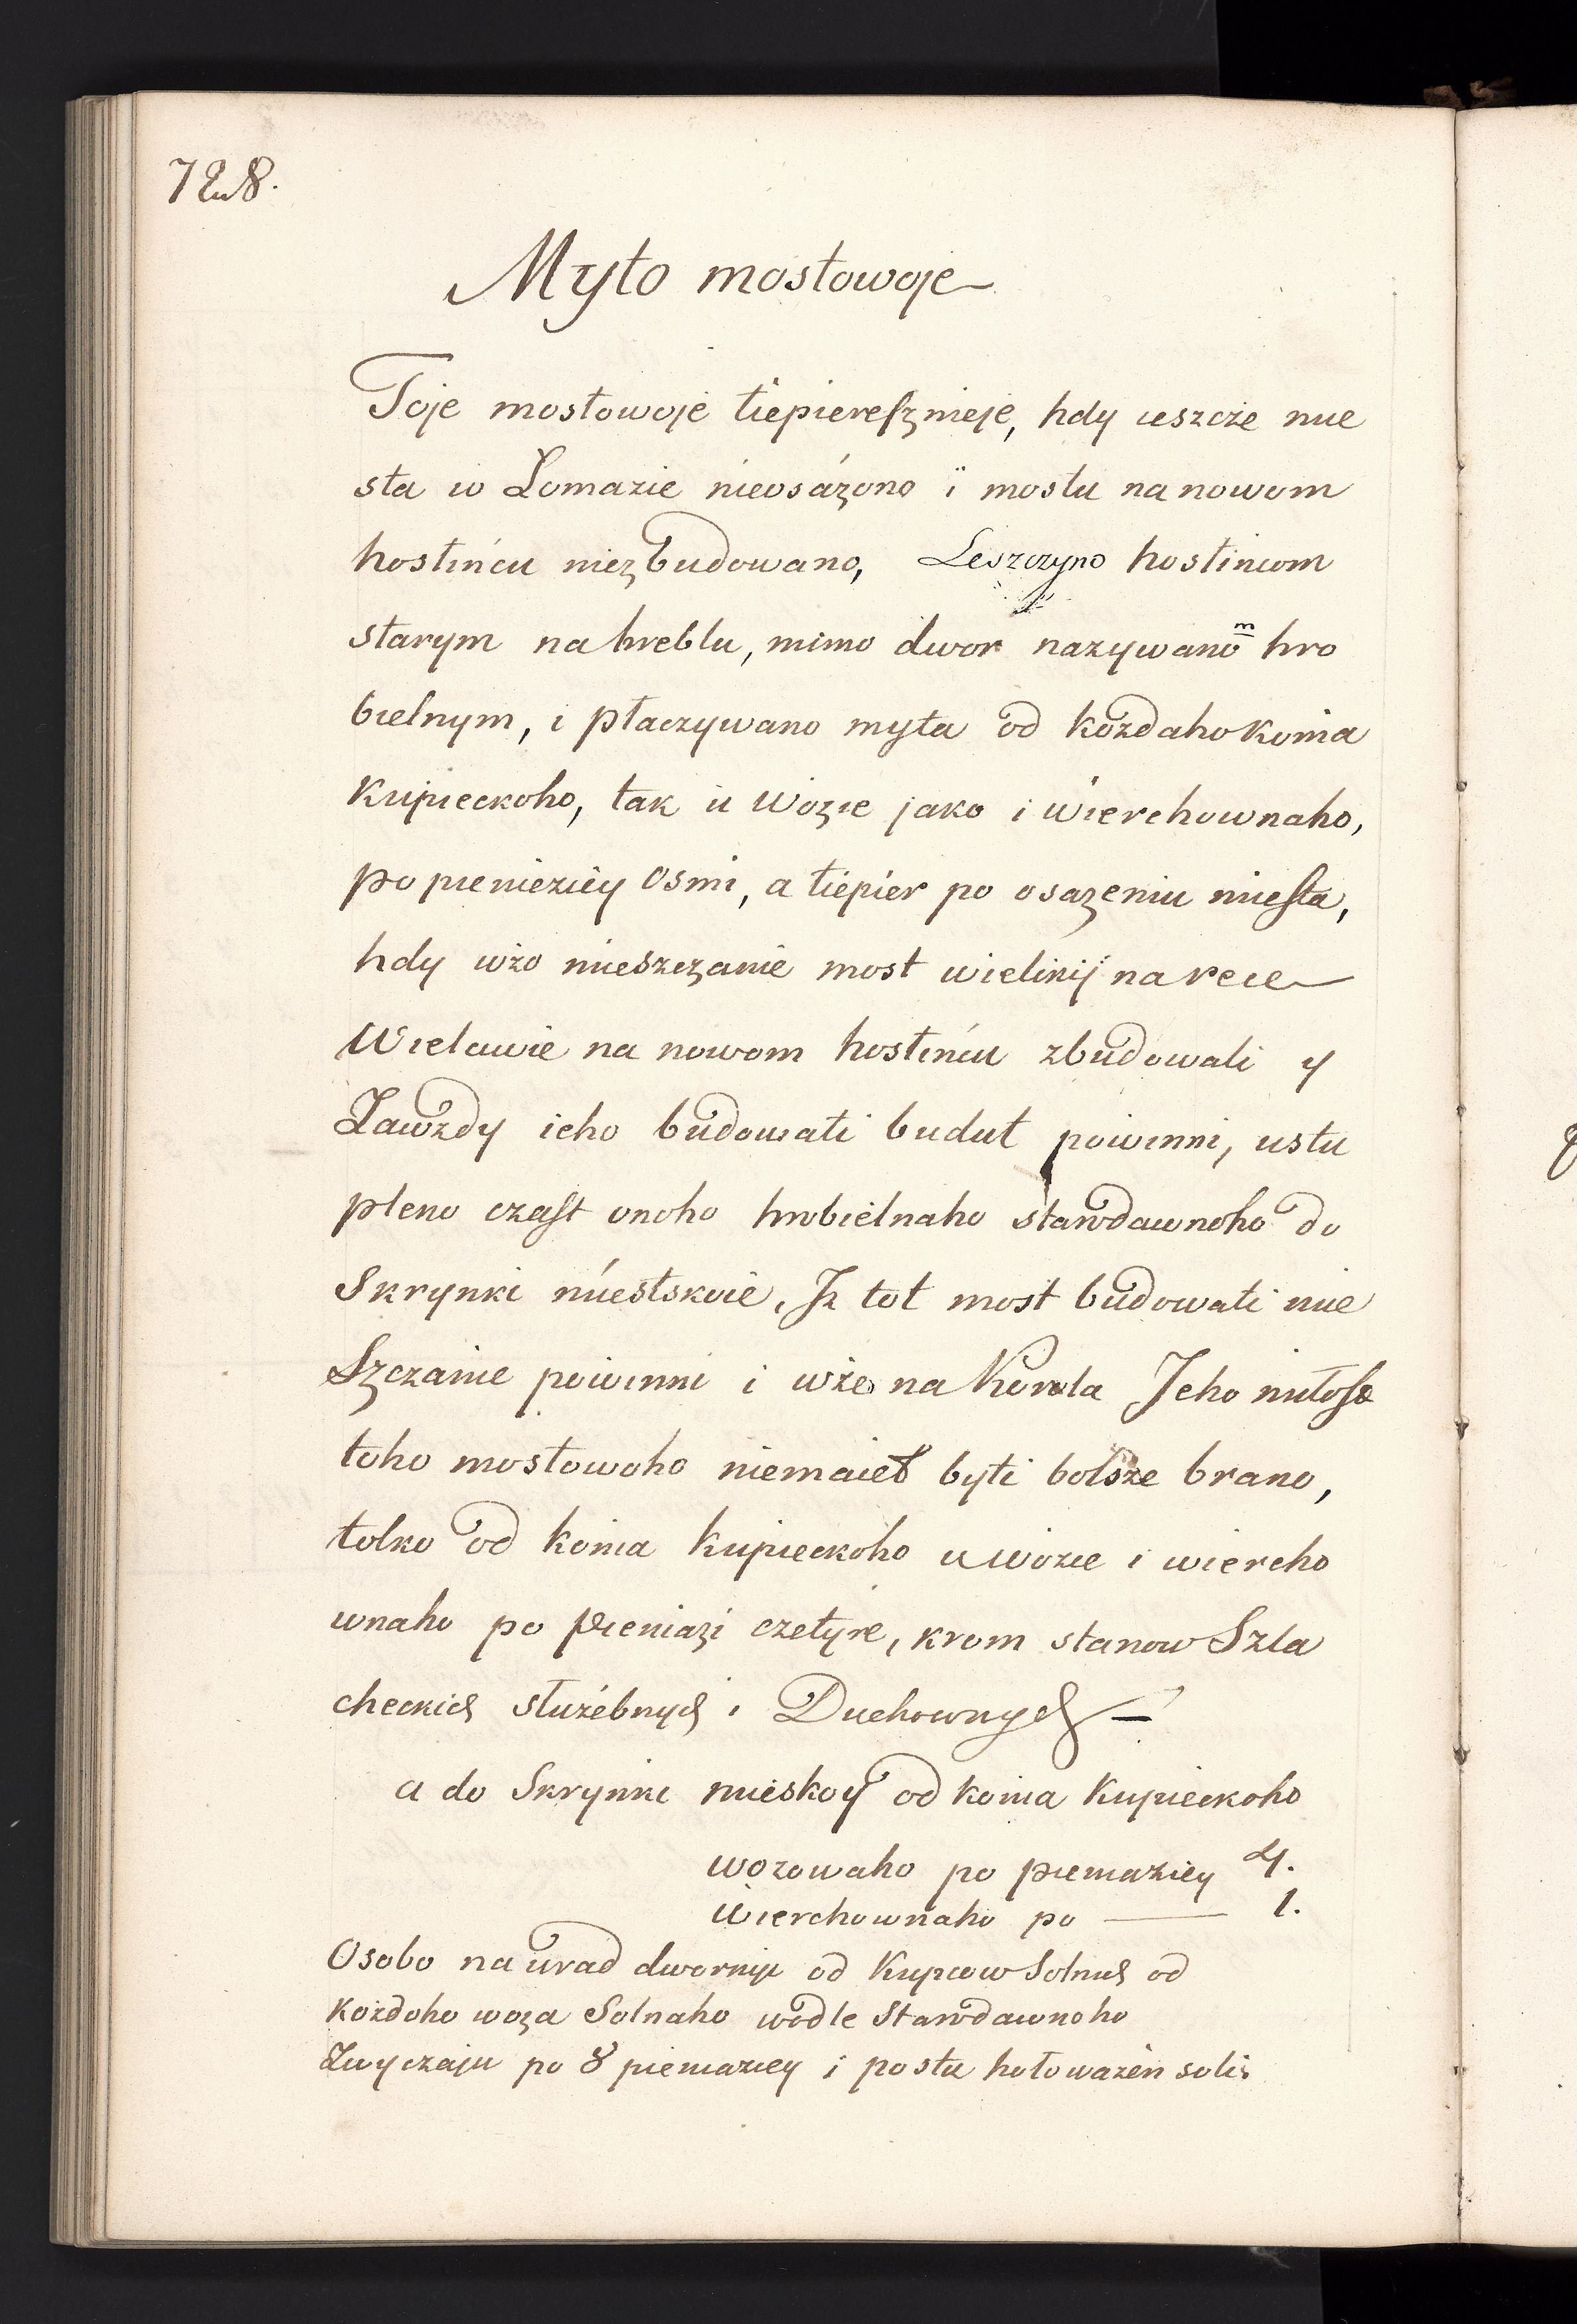 728.
Myto mostowoje
Toje mostowoje tiepieresznieje, hdy ieszcze mie
sta w Lomazie nieosázono i mostu na nowom
hostińcu niezbudowano, Leszczyno hostincom
starym na hreblu, mimo dwor nazywanom hro
bielnym, i płaczywano myta od kozdaho konia
Kupieckoho, tak u wozie jako i wierchownaho,
po pienieziey osmi, a tiepier po osazeniu miesta,
hdy wżo mieszczanie most wielikij na rece
Wielawie na nowom hostińcu zbudowali y
Zawzdy ieho budowati budut powinni, ustu
pleno czast onoho hrobielnaho starodawnoho do
Skrynki miestskoie, Iz tot most budowati mie
Szczanie powinni i wże na Korola Jeho miłosc
toho mostowoho niemaiet byti bolsze brano,
tolko od konia Kupieckoho u wozie i wiercho
wnaho po pieniazi czetyre, krom stanow Szla
checkich służebnych i Duchownych —
a do Skrynki mieskoy od konia Kupieckoho
wozowaho po pieniaziey 4.
wierchownaho po — 1.
Osobo na urad dwornyi od Kupcow Solnych od
kozdoho woza Solnaho wodle Starodawnoho
Zwyczaju po 8 pieniaziey i po stu hołowazen soli.